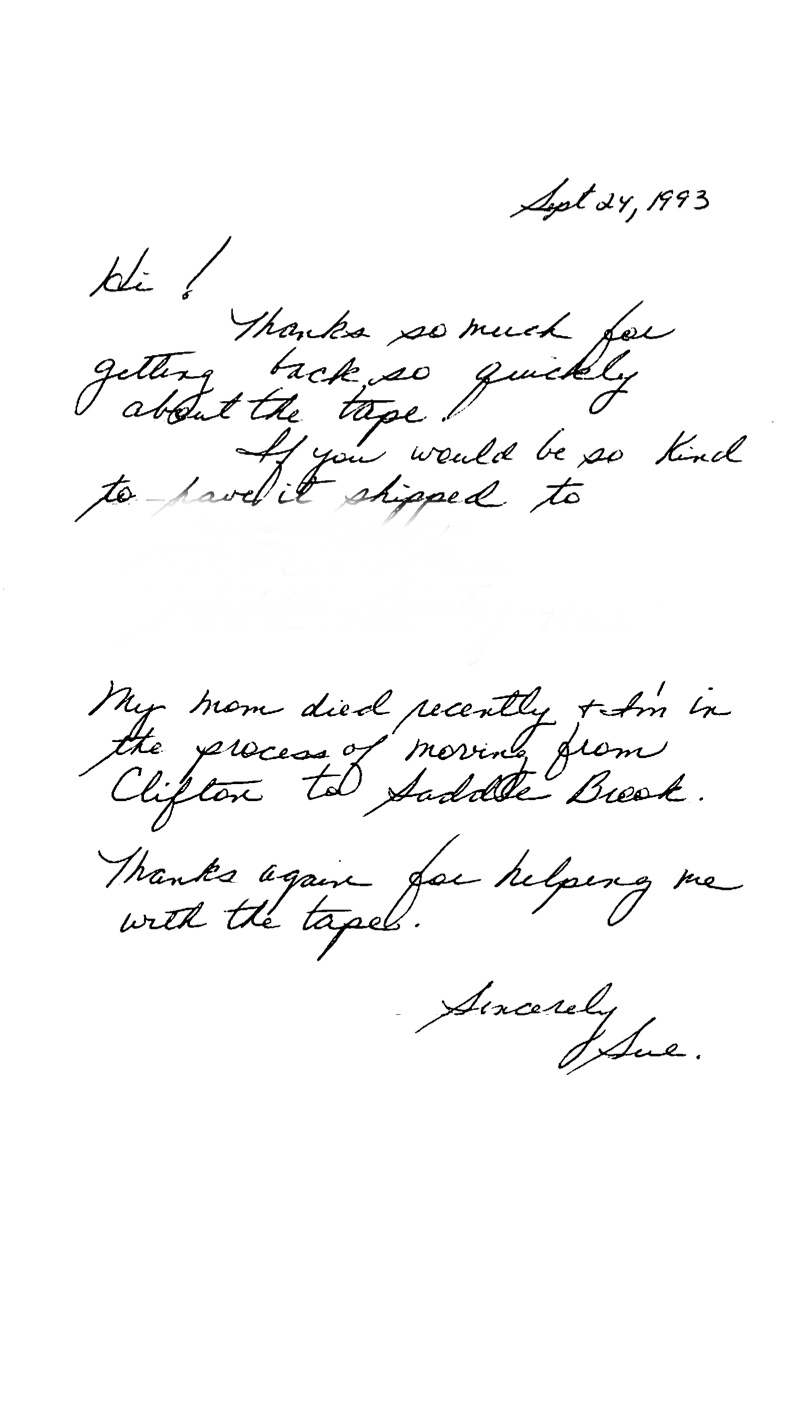 Sept 24, 1993
Hi !
Thanks so much for
getting back so quickly
about the tape.
If you would be so kind
to have it shipped to
My mom died recently + I'm in
the process of moving from
Clifton to Saddle Brook.
Thanks again for helping me
with the tape.
Sincerely
Sue.